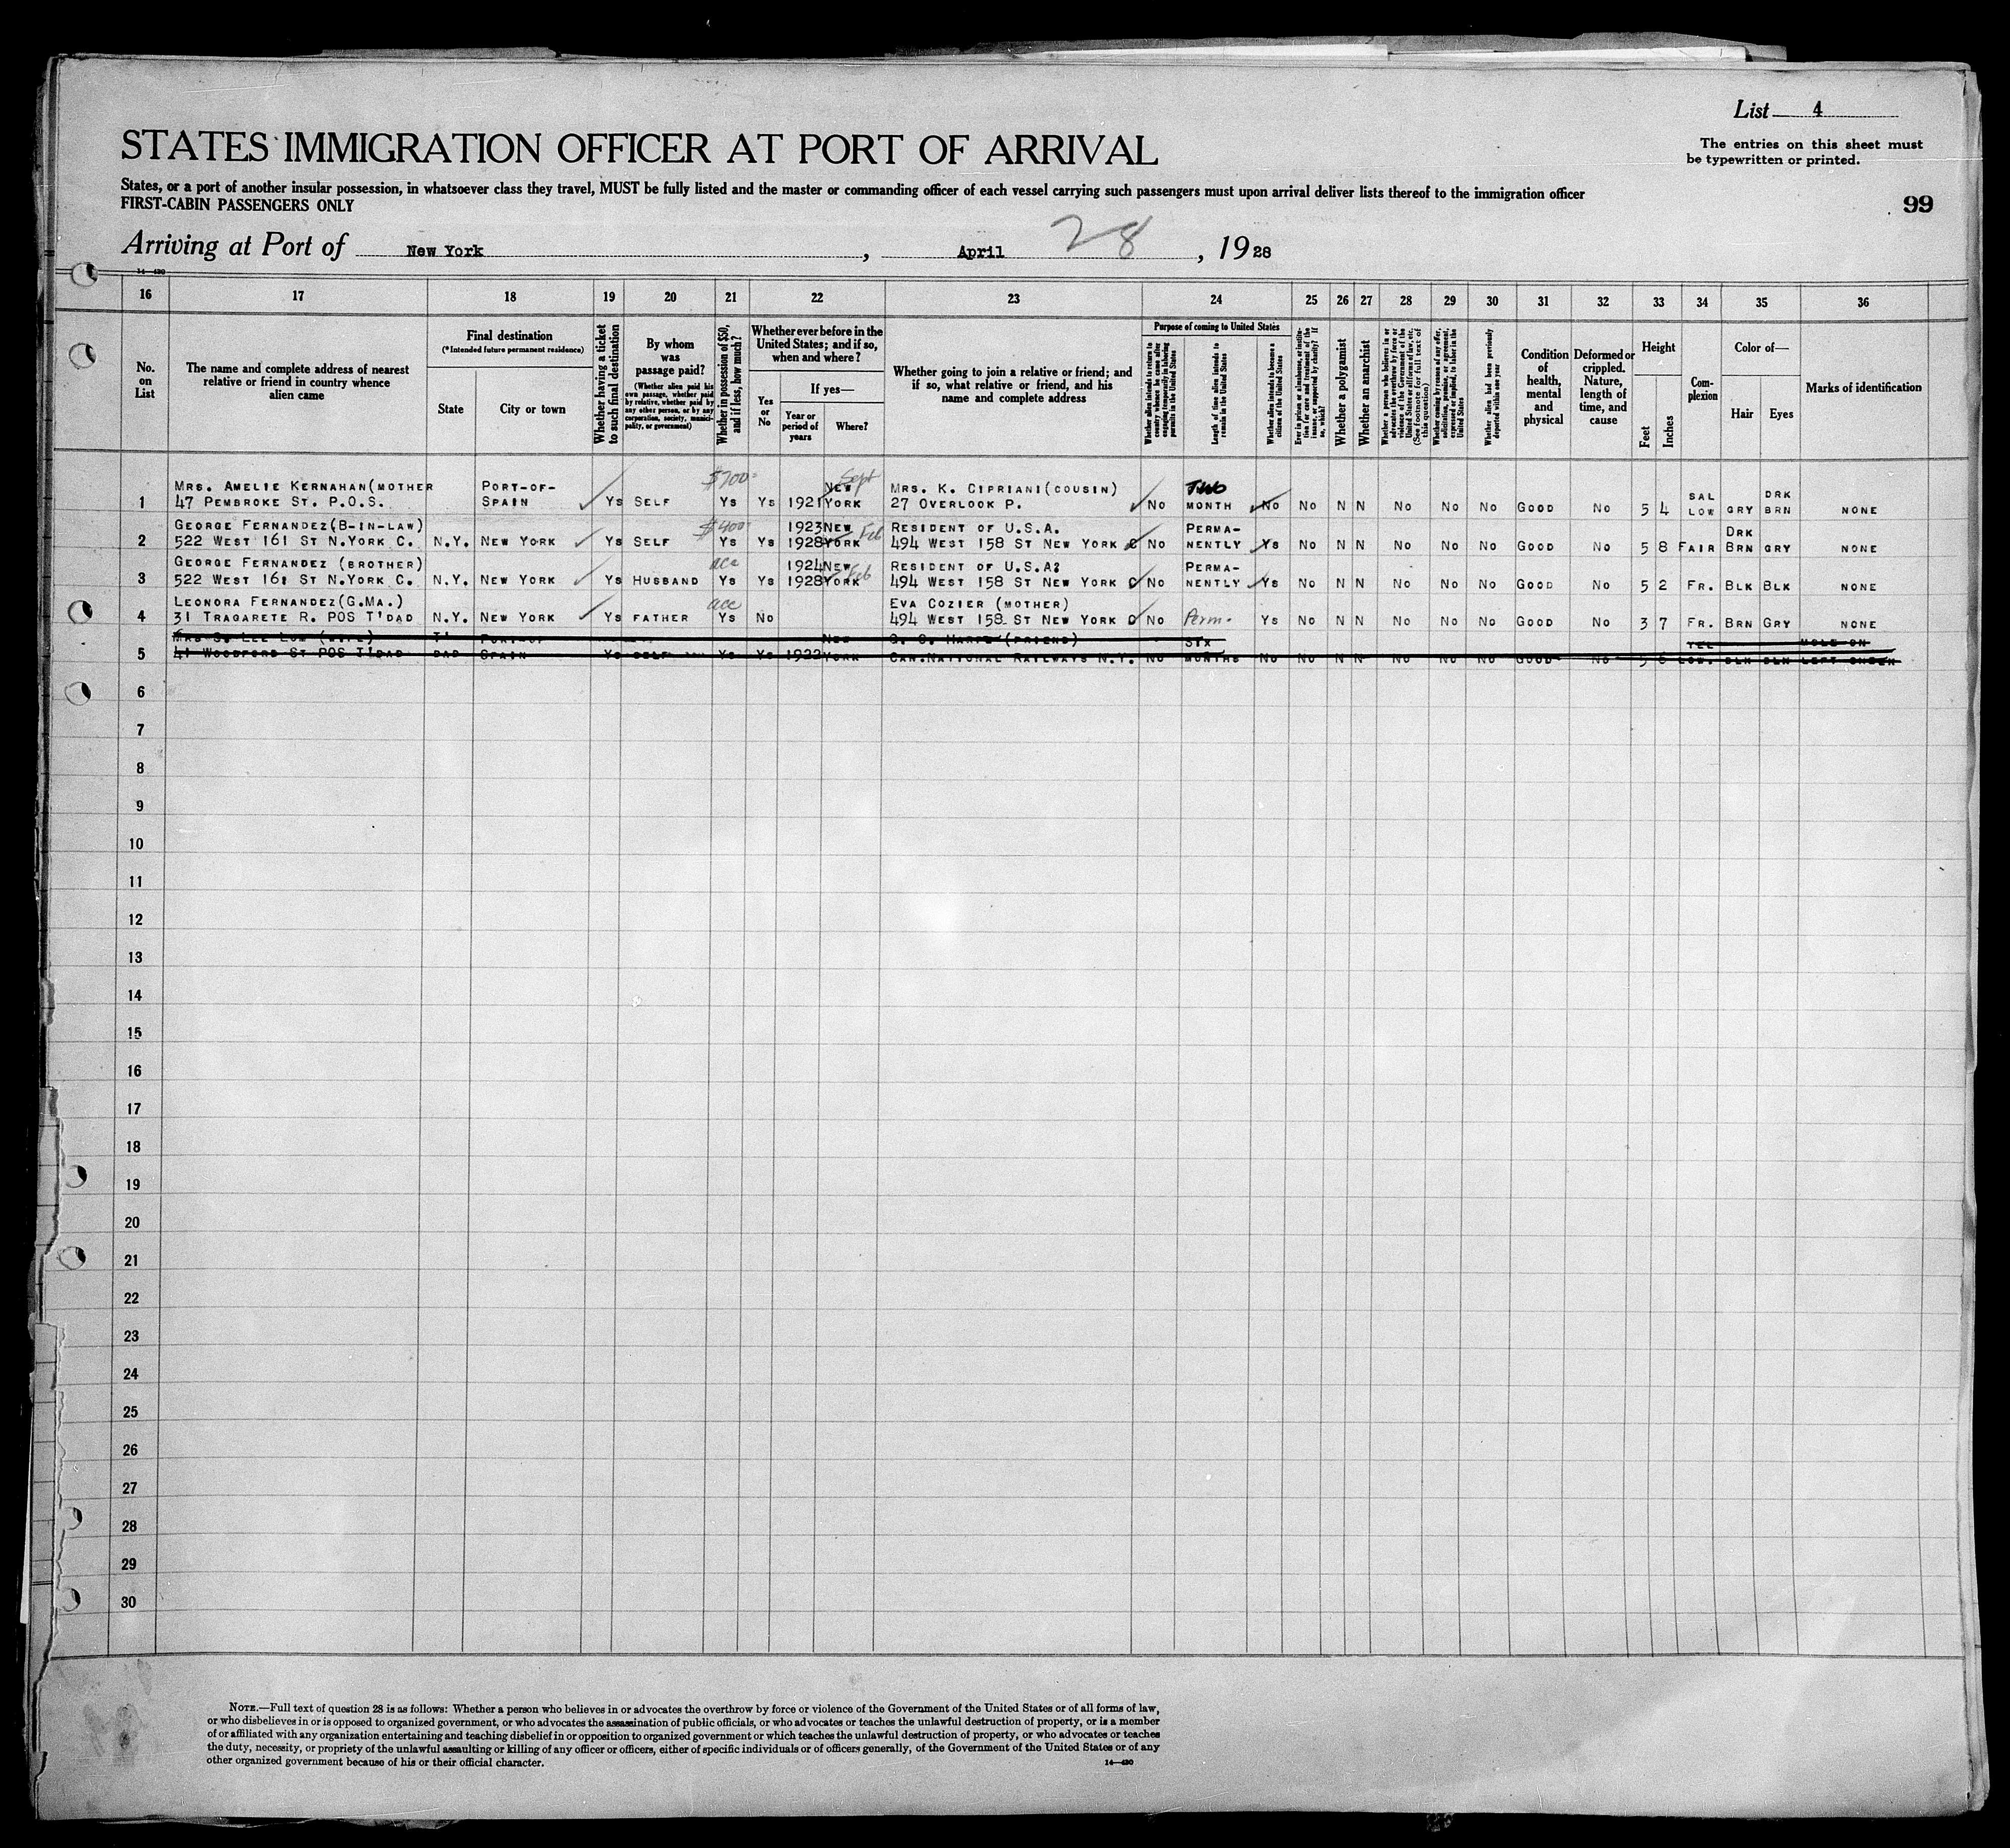 List 4
STATES IMMIGRATION OFFICER AT PORT OF ARRIVAL
The entries on this sheet must
be typewritten or printed.
States, or a port of another insular possession, in whatsoever class they travel, MUST be fully listed and the master or commanding officer of each vessel carrying such passengers must upon arrival deliver lists thereof to the immigration officer
FIRST-CABIN PASSENGERS ONLY
99
Arriving at Port of New York, April 28, 1928
14—430
16 17 18 19 20 21 22 23 24 25 26 27 28 29 30 31 32 33 34 35 36
No.
on
List
The name and complete address of nearest
relative or friend in country whence
alien came
Final destination
(*Intended future permanent residence)
State
City or town
Whether having a ticket
to such final destination
By whom
was
passage paid?
(Whether alien paid his
own passage, whether paid
by relative, whether paid by
any other person, or by any
corporation, society, munici-
pality, or government)
Whether in possession of $50,
and if less, how much?
Whether ever before in the
United States; and if so,
when and where?
Yes
or
No
If yes—
Year or
period of
years
Where?
Whether going to join a relative or friend; and
if so, what relative or friend, and his
name and complete address
Purpose of coming to United States
Whether alien intends to return to
country whence he came after
engaging temporarily in laboring
pursuits in the United States
Length of time alien intends to
remain in the United States
Whether alien intends to become a
citizen of the United States
Ever in prison or almshouse, or institu-
tion for care and treatment of the
insane, or supported by charity? If
so, which?
Whether a polygamist
Whether an anarchist
Whether a person who believes in or
advocates the overthrow by force or
violence of the Government of the
United States or all forms of law, etc.
(See footnote for full text of
this question)
Whether coming by reason of any offer,
solicitation, promise, or agreement,
expressed or implied, to labor in the
United States
Whether alien had been previously
deported within one year
Condition
of
health,
mental
and
physical
Deformed or
crippled.
Nature,
length of
time, and
cause
Height
Feet
Inches
Com-
plexion
Color of—
Hair
Eyes
Marks of identification
MRS. AMELIE KERNAHAN(MOTHER PORT-OF- $700 NEW Sept MRS. K. CIPRIANI(COUSIN) TWO SAL DRK
1 47 PEMBROKE ST. P.O.S. SPAIN YS SELF YS YS 1921 YORK 27 OVERLOOK P. NO MONTH NO NO N N NO NO NO GOOD NO 5 4 LOW GRY BRN NONE
GEORGE FERNANDEZ(B-IN-LAW) $400 1923 NEW Feb RESIDENT OF U.S.A. PERMA- DRK
2 522 WEST 161 ST N.YORK C. N.Y. NEW YORK YS SELF YS YS 1928 YORK 494 WEST 158 ST NEW YORK C NO NENTLY YS NO N N NO NO NO GOOD NO 5 8 FAIR BRN GRY NONE
GEORGE FERNANDEZ (BROTHER) acc 1924 NEW Feb RESIDENT OF U.S.A? PERMA-
3 522 WEST 161 ST N.YORK C. N.Y. NEW YORK YS HUSBAND YS YS 1928 YORK 494 WEST 158 ST NEW YORK C NO NENTLY YS NO N N NO NO NO GOOD NO 5 2 FR. BLK BLK NONE
LEONORA FERNANDEZ(G.MA.) acc EVA COZIER (MOTHER)
4 31 TRAGARETE R. POS T'DAD N.Y. NEW YORK YS FATHER YS NO 494 WEST 158 ST NEW YORK C NO Perm. YS NO N N NO NO NO GOOD NO 3 7 FR. BRN GRY NONE
MRS LEE LUM (WIFE) T' PORT-OF NEW (FRIEND) SIX YEL MOLE ON
5 41 WOODFORD ST POS T'DAD DAD SPAIN YS SELF YS YS 1922 YORK CAN.NATIONAL RAILWAYS N.Y. NO MONTHS NO NO N N NO NO NO GOOD NO 5 LOW. BLK BLK LEFT CHEEK
6
7
8
9
10
11
12
13
14
15
16
17
18
19
20
21
22
23
24
25
26
27
28
29
30
NOTE.—Full text of question 28 is as follows: Whether a person who believes in or advocates the overthrow by force or violence of the Government of the United States or of all forms of law,
or who disbelieves in or is opposed to organized government, or who advocates the assassination of public officials, or who advocates or teaches the unlawful destruction of property, or is a member
of or affiliated with any organization entertaining and teaching disbelief in or opposition to organized government or which teaches the unlawful destruction of property, or who advocates or teaches
the duty, necessity, or propriety of the unlawful assaulting or killing of any officer or officers, either of specific individuals or of officers generally, of the Government of the United States or of any
other organized government because of his or their official character.
14—430